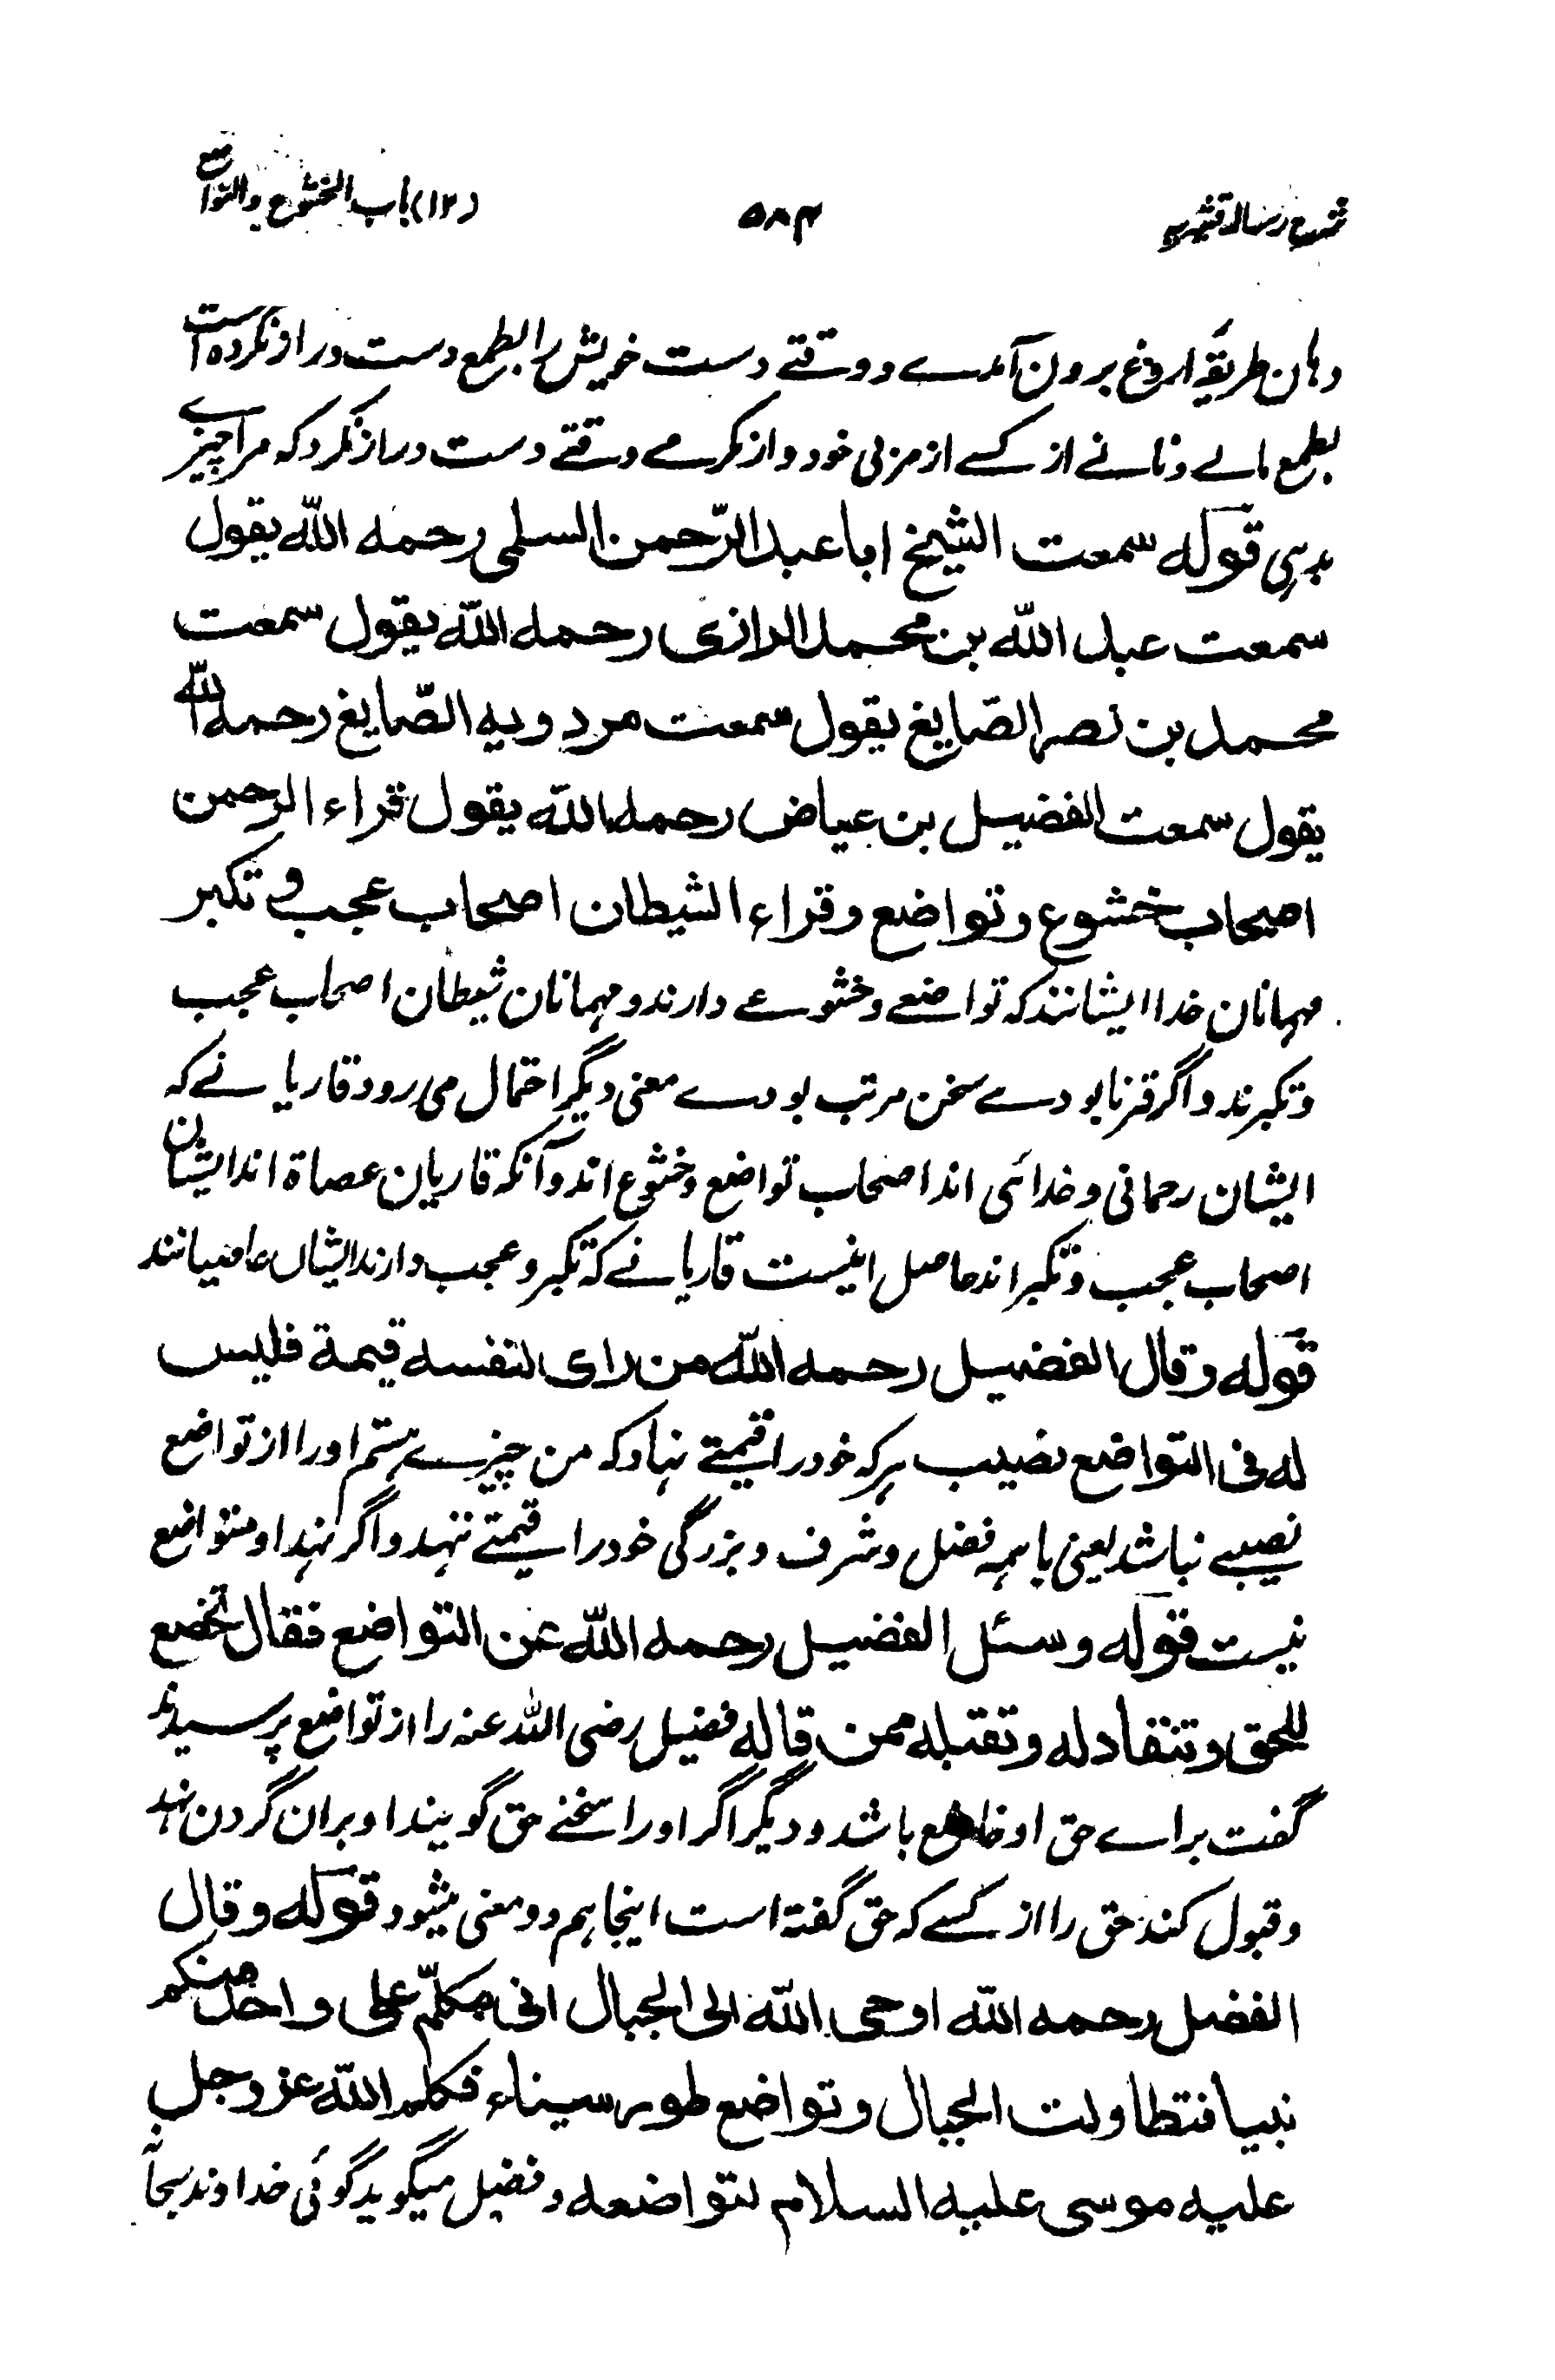 شرح رسالہ قشیریہ ۵۸۴ (۱۲) باب الخشوع والتواضع
دہان طریقہ آروغ برون آمدے و وقتے دست خویش را بطمع دست دراز نکردہ است
بطمع مالے و نانے از کسے از مزبی خود و از مکرمے وقتے دست دراز نکرد کہ مرا چیزے
بدہی قوله سمعت الشیخ ابا عبد الرّحمن السلمی رحمه اللّٰه یقول
سمعت عبد اللّٰه بن محمد الرازی رحمه اللّٰه یقول سمعت
محمد بن نصر الصّایغ یقول سمعت مردویه الصّایغ رحمه اللّٰه
یقول سمعت الفضیل بن عیاض رحمه اللّٰه یقول قراء الرحمن
اصحاب خشوع وتواضع وقراء الشیطان اصحاب عجب و تکبر
مہمانان خدا ایشانند کہ تواضعے وخشوعے دارند و مہمانان شیطان اصحاب عجب
و تکبرند و اگر قرنا بودے سخن مرتب بودے معنی دیگر احتمال می رود قاریانے کہ
ایشان رحمانی و خدائی اند اصحاب تواضع و خشوع اند و آنکہ قاریان عصاة اند ایشان
اصحاب عجب و تکبر اند حاصل اینست قاریانے کہ تکبر و عجب دارند ایشاں عاصیانند
قوله وقال الفضیل رحمه اللّٰه من رای لنفسه قیمة فلیس
له فی التواضع نصیب ہرکہ خود را قیمتے نہاد کہ من چیزے ہستم اورا از تواضع
نصیبے نباشد یعنی باہمہ فضل و شرف و بزرگی خود را قیمتے ننہد و اگر نہد او متواضع
نیست قوله وسئل الفضیل رحمه اللّٰه عن التواضع فقال تخضع
للحق وتنقاد له وتقبله ممن قاله فضیل رضی اللہ عنہ را از تواضع پرسیدند
گفت براے حق او خاضع باشد و دیگر اگر اورا سخنے حق گویند او بران گردن نہد
و قبول کند حق را از کسے کہ حق گفتہ است اینجا ہم دو معنی میشود قوله وقال
الفضل رحمه اللّٰه اوحی اللّٰه الی الجبال انی مکلّم علی واحد منکم
نبیا فتطاولت الجبال وتواضع طور سیناء فکلم اللّٰه عز وجل
علیه موسی علیه السلام لتواضعه و فضیل میگوید گوئی خداوند سبحانہ